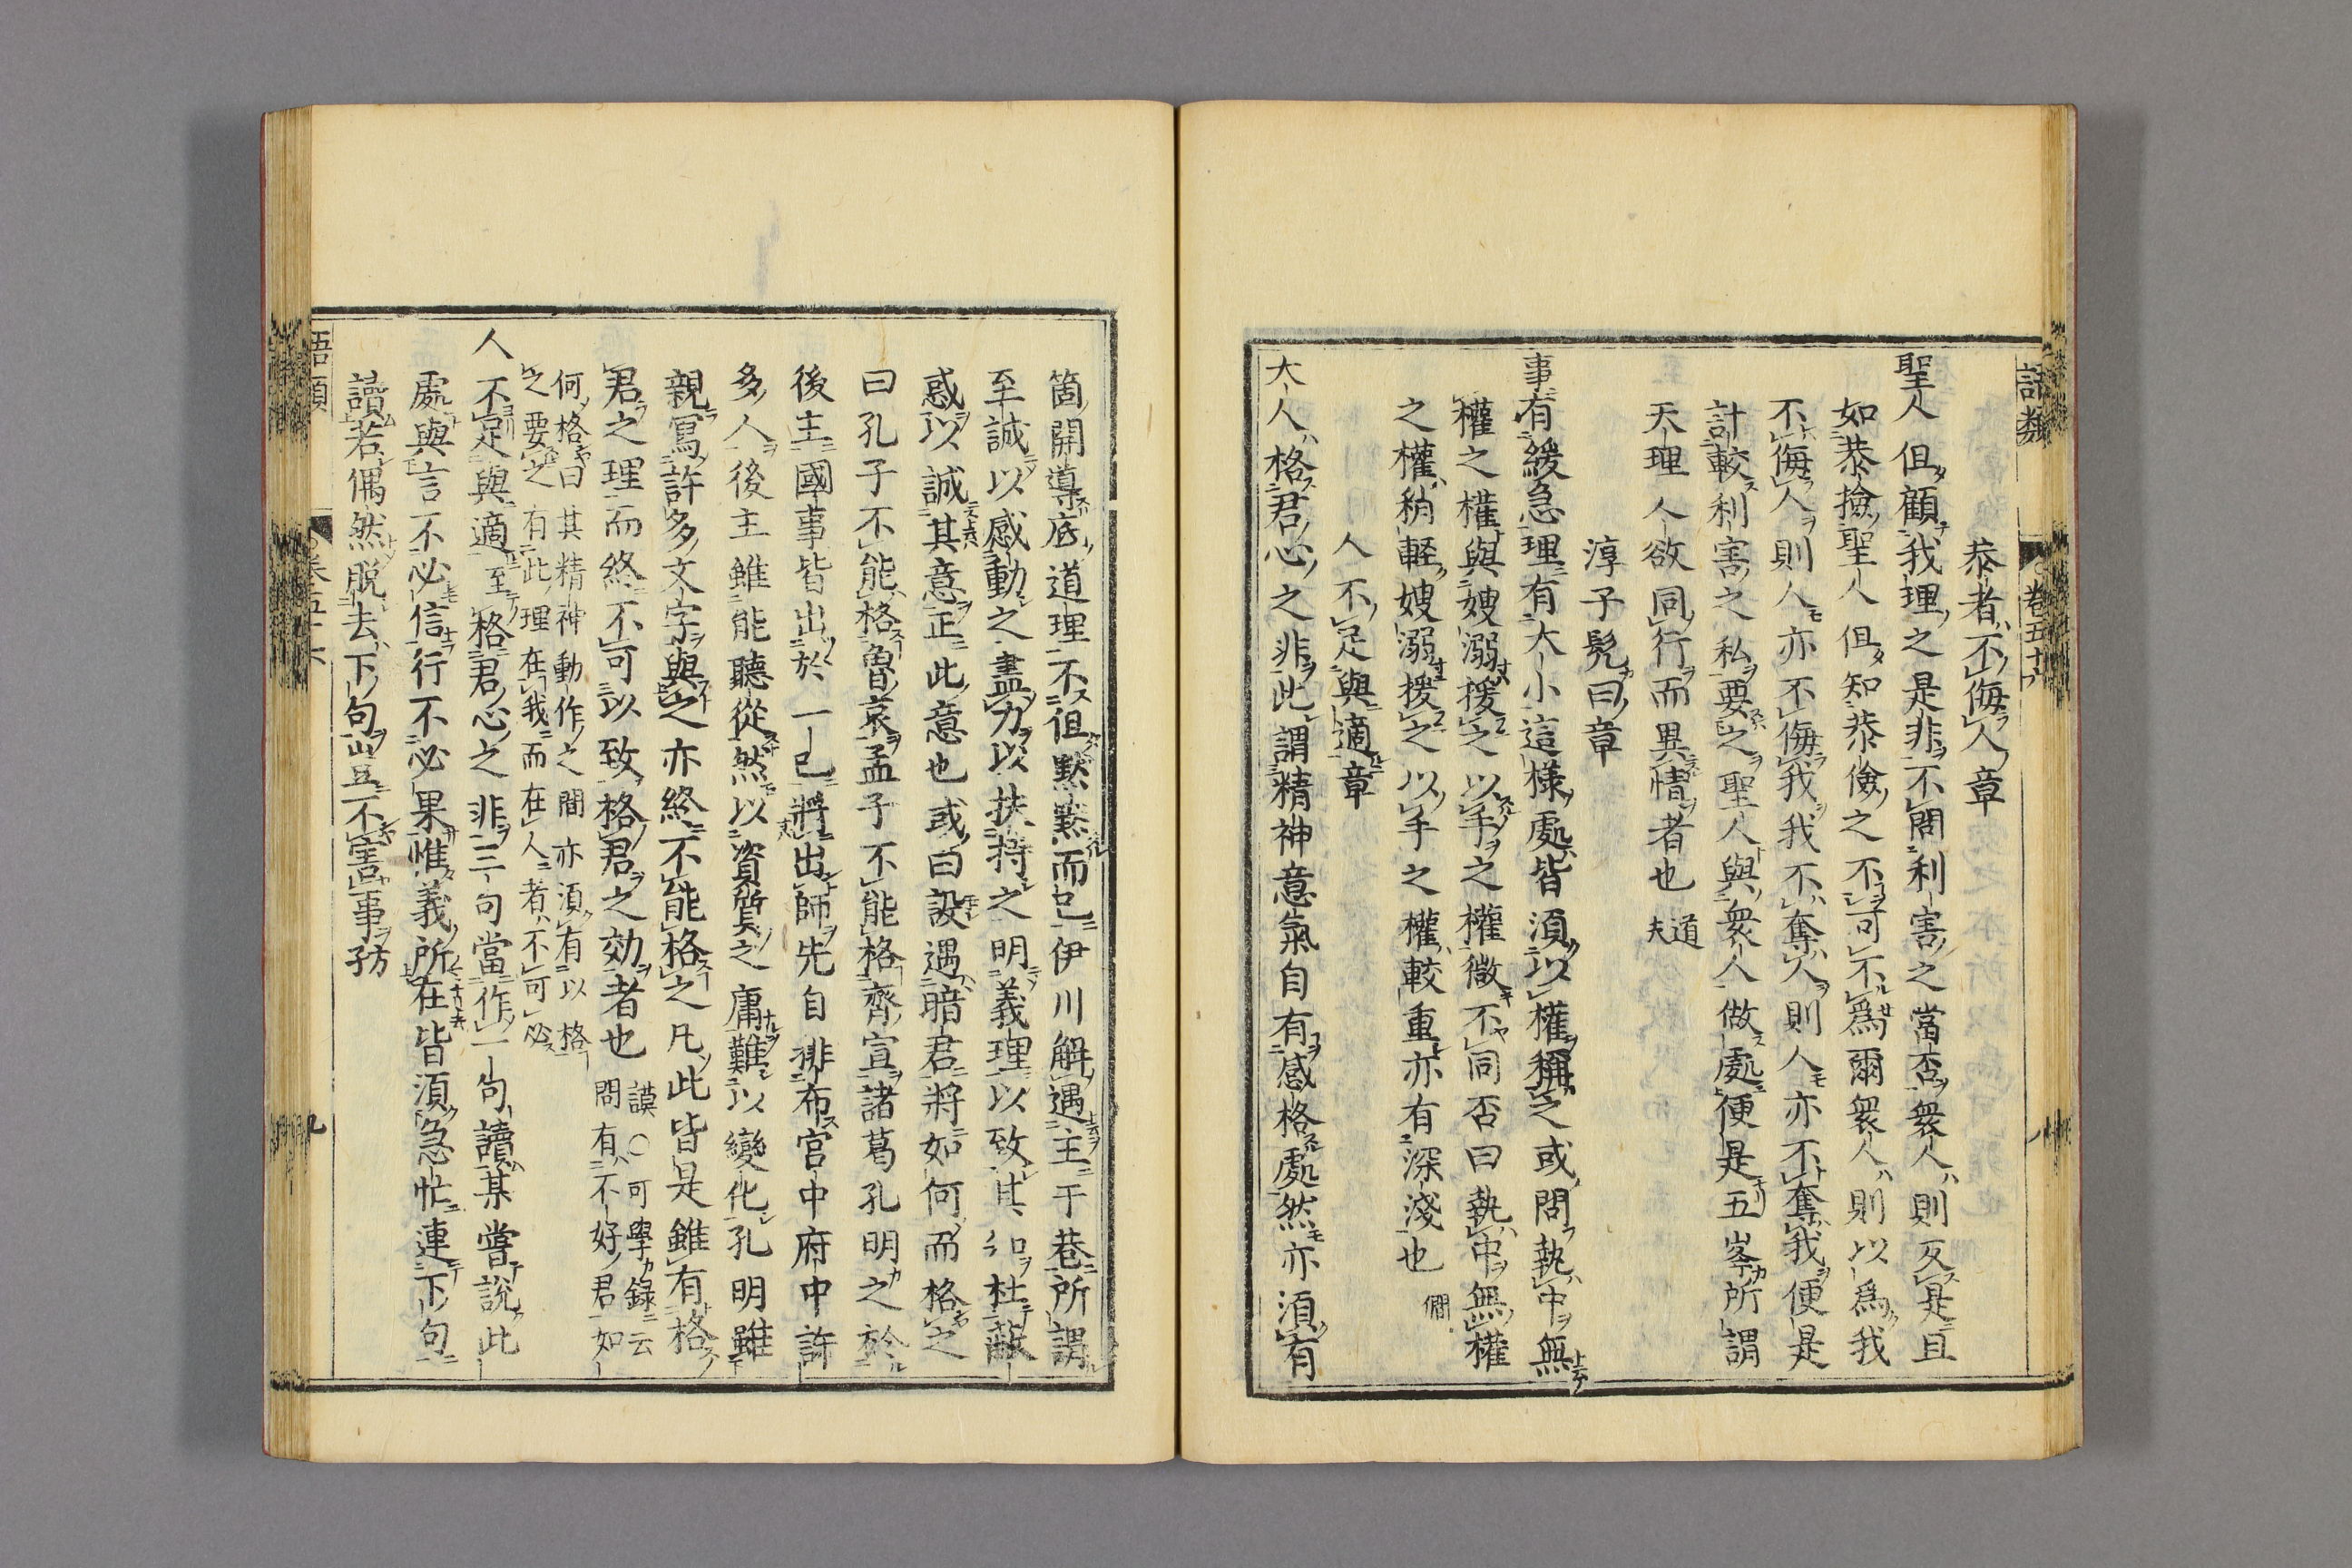 語類
卷五十六
恭者不侮人章
聖人但顧我理之是非不問利害之當否衆人則反是且
如恭儉聖人但知恭儉之不可不爲爾衆人則以爲我
不侮人則人亦不侮我我不奪人則人亦不奪我便是
計較利害之私要之聖人與衆人做處便是五峯所謂
天理人欲同行而異情者也道夫
淳于髡曰章
事有緩急理有大小這樣處皆須以權稱之或問執中無
權之權與嫂溺援之以手之權微不同否曰執中無權
之權稍輕嫂溺援之以手之權較重亦有深淺也僩
人不足與適章
大人格君心之非此謂精神意氣自有感格處然亦須有
箇開導底道理不但默默而已伊川解遇主于巷所謂
至誠以感動之盡力以扶持之明義理以致其知杜蔽
惑以誠其意正此意也或曰設遇暗君將如何而格之
曰孔子不能格魯哀孟子不能格齊宣諸葛孔明之於
後主國事皆出於一己將出師先自排布宮中府中許
多人後主雖能聽從然以資質之庸難以變化孔明雖
親寫許多文字與之亦終不能格之凡此皆是雖有格
君之理而終不可以致格君之効者也謨○可學錄云問有不好君如
何格曰其精神動作之間亦須有以格
之要之有此理在我而在人者不可必
人不足與適至格君心之非三句當作一句讀某嘗說此
處與言不必信行不必果惟義所在皆須急忙連下句
讀若偶然脫去下句豈不害事孜
語類
卷五十六
九